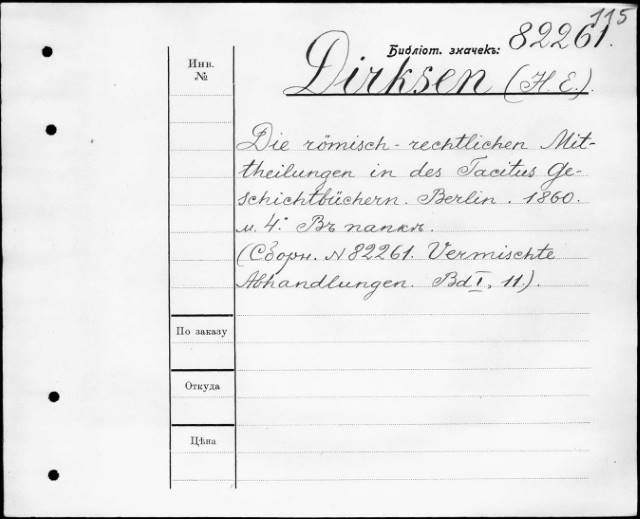 115
Библіот. значекъ: 82261.
Инв.
№
Dirksen (H. E.)
Die römisch-rechtlichen Mit-
theilungen in des Tacitus Ge-
schichtbüchern. Berlin. 1860.
м. 4.° Въ папкѣ.
(Сборн. N 82261. Vermischte
Abhandlungen. Bd I, 11).
По заказу
Откуда
Цѣна